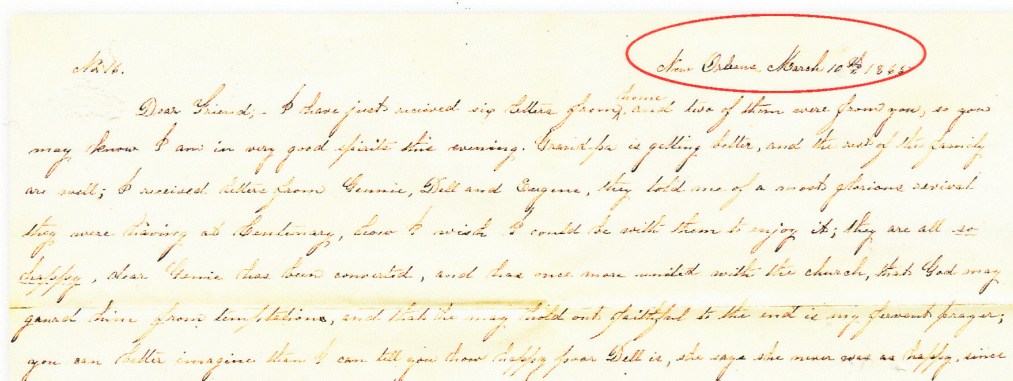 No 16.
New Orleans, March 10th 1865
Dear Friend;- I have just recived six letters from home, and two of them were from you, so you
may know I am in very good spirits this evening. Grandpa is getting better, and the rest of the family
are well; I received letters from Gennie, Dell and Eugene, they told me of a most glorious revival
they were having at Centenary, how I wish I could be with them to enjoy it; they are all so
happy, dear Genie has been converted, and has once more united with the church, that God may
gaurd him from temptations, and that he may hold out faithful to the end is my fervent prayer;
you can better imagine than I can tell you how happy poor Dell is, she says she never was as happy, since